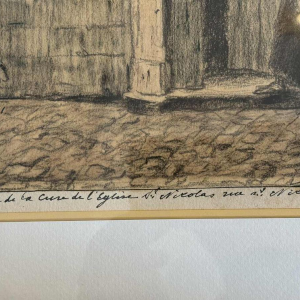 de la Cure de l'Eglise St. Nicolas rue St. Ni